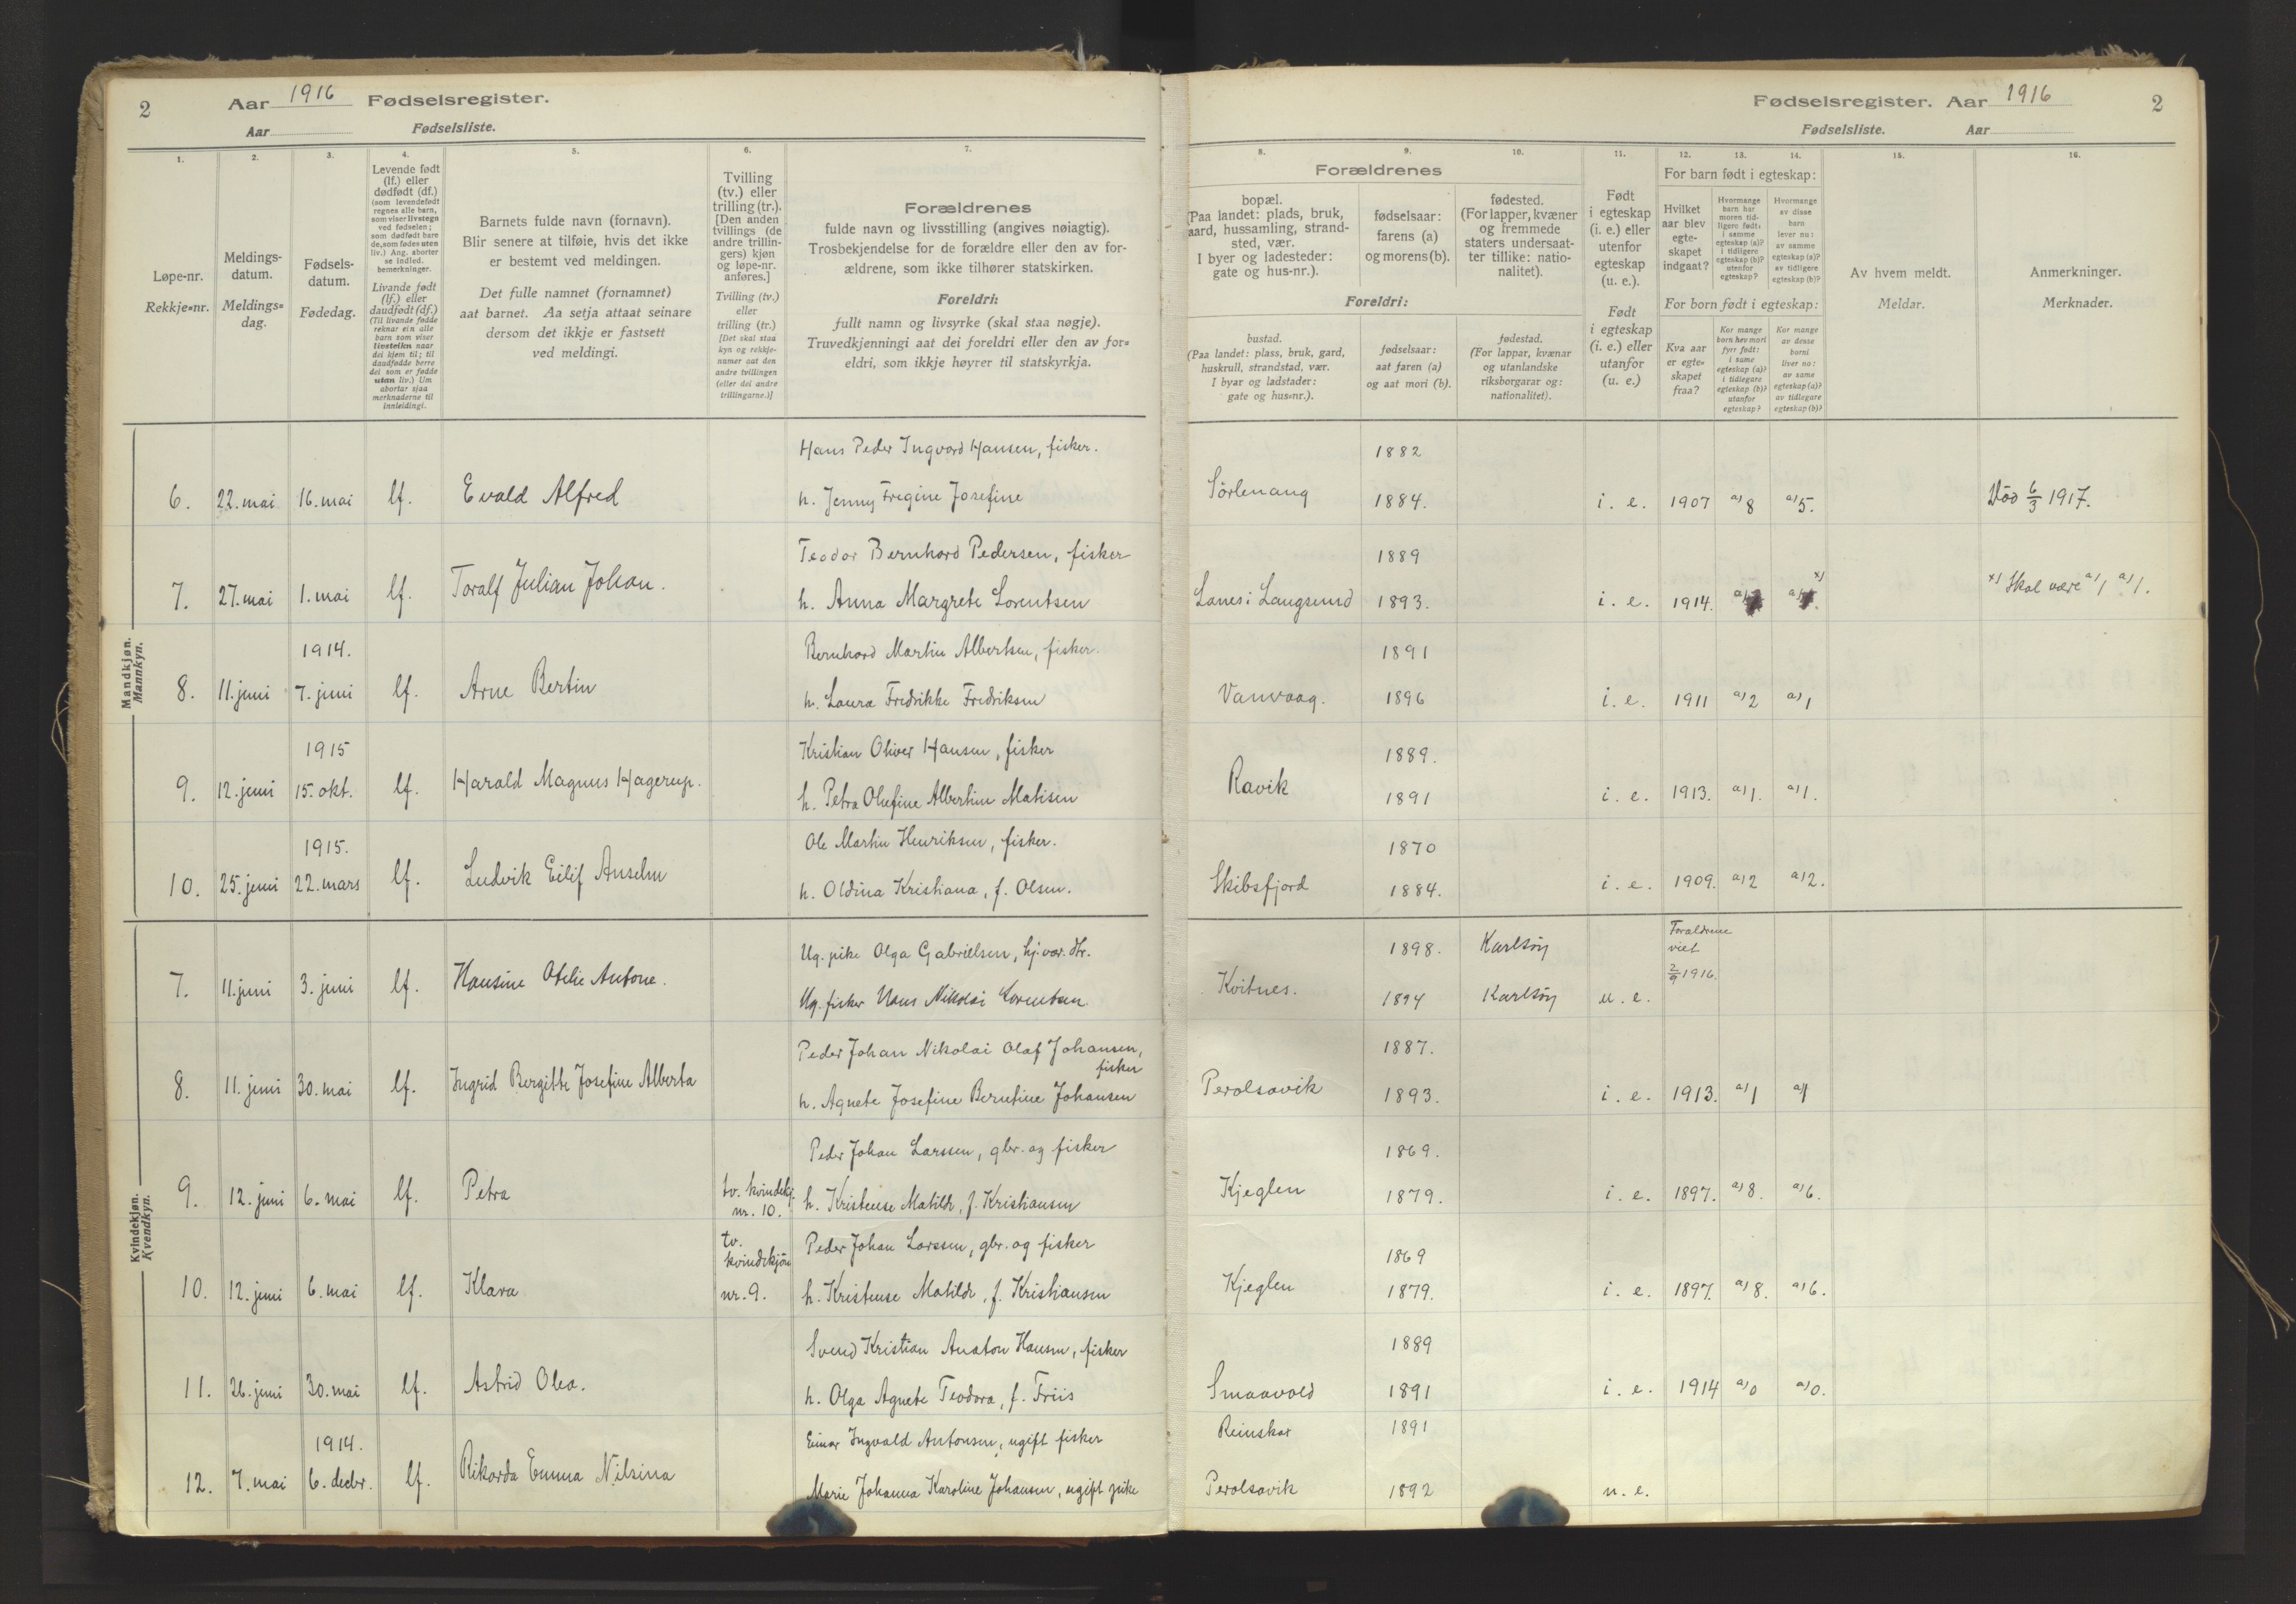 2
Aar 1916 Fødselsregister.
Aar Fødselsliste.
Fødselsregister. Aar 1916
2
Fødselsliste. Aar
1.
Løpe-nr.
Rekkje=nr.
2.
Meldings-
datum.
Meldings=
dag.
3.
Fødsels-
datum.
Fødedag.
4.
Levende født
(lf.) eller
dødfødt (df.)
(som levendefødt
regnes alle barn,
som viser livstegn
ved fødselen;
som dødfødt bare
de, som fødes uten
liv.) Ang. aborter
se indled.
bemerkninger.
Livande født
(lf.) eller
daudfødt (df.)
(Til livande fødde
reknar ein alle
barn som viser
livsteikn naar
dei kjem til; til
daudfødde berre
dei som er fødde
utan liv.) Um
abortar sjaa
merknaderne til
innleidingi.
5.
Barnets fulde navn (fornavn).
Blir senere at tilføie, hvis det ikke
er bestemt ved meldingen.
Det fulle namnet (fornamnet)
aat barnet. Aa setja attaat seinare
dersom det ikkje er fastsett
ved meldingi.
6.
Tvilling
(tv.) eller
trilling (tr.).
[Den anden
tvillings (de
andre trillin-
gers) kjøn
og løpe-nr.
anføres.]
Tvilling (tv.)
eller
trilling (tr.)
[Det skal staa
kyn og rekkje-
numer aat den
andre tvillingen
(eller dei andre
trillingarne.)]
7.
Forældrenes
fulde navn og livsstilling (angives nøiagtig).
Trosbekjendelse for de forældre eller den av for-
ældrene, som ikke tilhører statskirken.
Foreldri:
fullt namn og livsyrke (skal staa nøgje).
Truvedkjenningi aat dei foreldri eller den av for=
eldri, som ikkje høyrer til statskyrkja.
Forældrenes
8.
bopæl.
(Paa landet: plads, bruk,
gaard, hussamling, strand-
sted, vær.
I byer og ladesteder:
gate og hus-nr.).
9.
fødselsaar:
farens (a)
og morens (b).
10.
fødested.
(For lapper, kvæner
og fremmede
staters undersaat-
ter tillike: natio-
nalitet).
Foreldri:
bustad.
(Paa landet: plass, bruk, gard,
huskrull, strandstad, vær.
I byar og ladstader:
gate og hus=nr.).
fødselsaar:
aat faren (a)
og aat mori (b).
fødestad.
(For lappar, kvænar
og utanlandske
riksborgarar og:
nationalitet).
11.
Født
i egteskap
(i. e.) eller
utenfor
egteskap
(u. e.).
Født
i egteskap
(i. e.) eller
utanfor
(u. e.)
For barn født i egteskap:
12.
Hvilket
aar blev
egte-
skapet
indgaat?
13.
Hvormange
barn har
moren tid-
ligere født:
i samme
egteskap (a)?
i tidligere
egteskap (b)?
utenfor
egteskap?
14.
Hvormange
av disse
barn
lever nu:
av samme
egteskap (a)?
av tidligere
egteskap (b)?
For born født i egteskap:
Kva aar
er egte-
skapet
fraa?
Kor mange
born hev mori
fyrr født:
i same
egteskap (a)?
i tidlegare
egteskap (b)?
utanfor
egteskap?
Kor mange
av desse
borni
liver no:
av same
egteskap (a)?
av tidlegare
egteskap (b)?
15.
Av hvem meldt.
Meldar.
16.
Anmerkninger.
Merknader.
Mandkjøn.
Mannkyn.
Hans Peder Ingvard Hansen, fisker. 1882
6. 22. mai 16. mai lf. Evald Alfred h. Jenny Fregine Josefine Sörlenang 1884. i. e. 1907 a) 8 a) 5. Död 6/3 1917.
Teodor Bernhard Pedersen, fisker 1889
7. 27. mai 1. mai lf. Toralf Julian Johan. h. Anna Margrete Lorentsen Lanes i Langsund 1893. i. e. 1914. a) a) x) x) Skal være a) 1 a) 1.
1914. Bernhard Martin Albertsen, fisker. 1891
8. 11. juni 7. juni lf. Arne Bertin h. Laura Fredrikke Fredriksen Vanvaag. 1896 i. e. 1911 a) 2 a) 1
1915 Kristian Oliver Hansen, fisker 1889.
9. 12. juni 15. okt. lf. Harald Magnus Hagerup. h. Petra Olufine Albertine Matisen Ravik 1891 i. e. 1913. a) 1. a) 1.
1915. Ole Martin Henriksen, fisker. 1870
10. 25. juni 22. mars lf. Ludvik Eilif Anselm h. Oldina Kristiana, f. Olsen. Skibsfjord 1884. i. e. 1909. a) 2 a) 2.
Kvindekjøn.
Kvendkyn.
Ug. pike Olga Gabrielsen, hj. vær. dtr. 1898. Karlsöy Foraldrene
viet
2/9 1916.
7. 11. juni 3. juni lf. Hansine Otelie Antone. Ug. fisker Hans Nikolai Lorentsen Kvitnes. 1894 Karlsöy u. e.
Peder Johan Nikolai Olaf Johansen,
fisker 1887.
8. 11. juni 30. mai lf. Ingrid Bergitte Josefine Alberta h. Agnete Josefine Berntine Johansen Perolsavik 1893. i. e. 1913. a) 1 a) 1
Peder Johan Larssen, gbr. og fisker 1869.
9. 12. juni 6. mai lf. Petra tv. kvindekj.
nr. 10. h. Kristense Matilde, f. Kristiansen Kjeglen 1879. i. e. 1897. a) 8. a) 6.
tv.
kvindekjön Peder Johan Larssen, gbr. og fisker 1869
10. 12. juni 6. mai lf. Klara nr. 9. h. Kristense Matilde, f. Kristiansen Kjeglen 1879. i. e. 1897. a) 8. a) 6.
Svend Kristian Anaton Hansen, fisker 1889
11. 26. juni 30. mai lf. Astrid Olea. h. Olga Agnete Teodora, f. Friis Smaavold 1891 i. e. 1914 a) 0 a) 0.
1914. Einar Ingvald Antonsen, ugift fisker Reinskar 1891
12. 7. mai 6. decbr. lf. Rikarda Emma Nilsina Marie Johanna Karoline Johansen, ugift pike Perolsavik 1892 u. e.